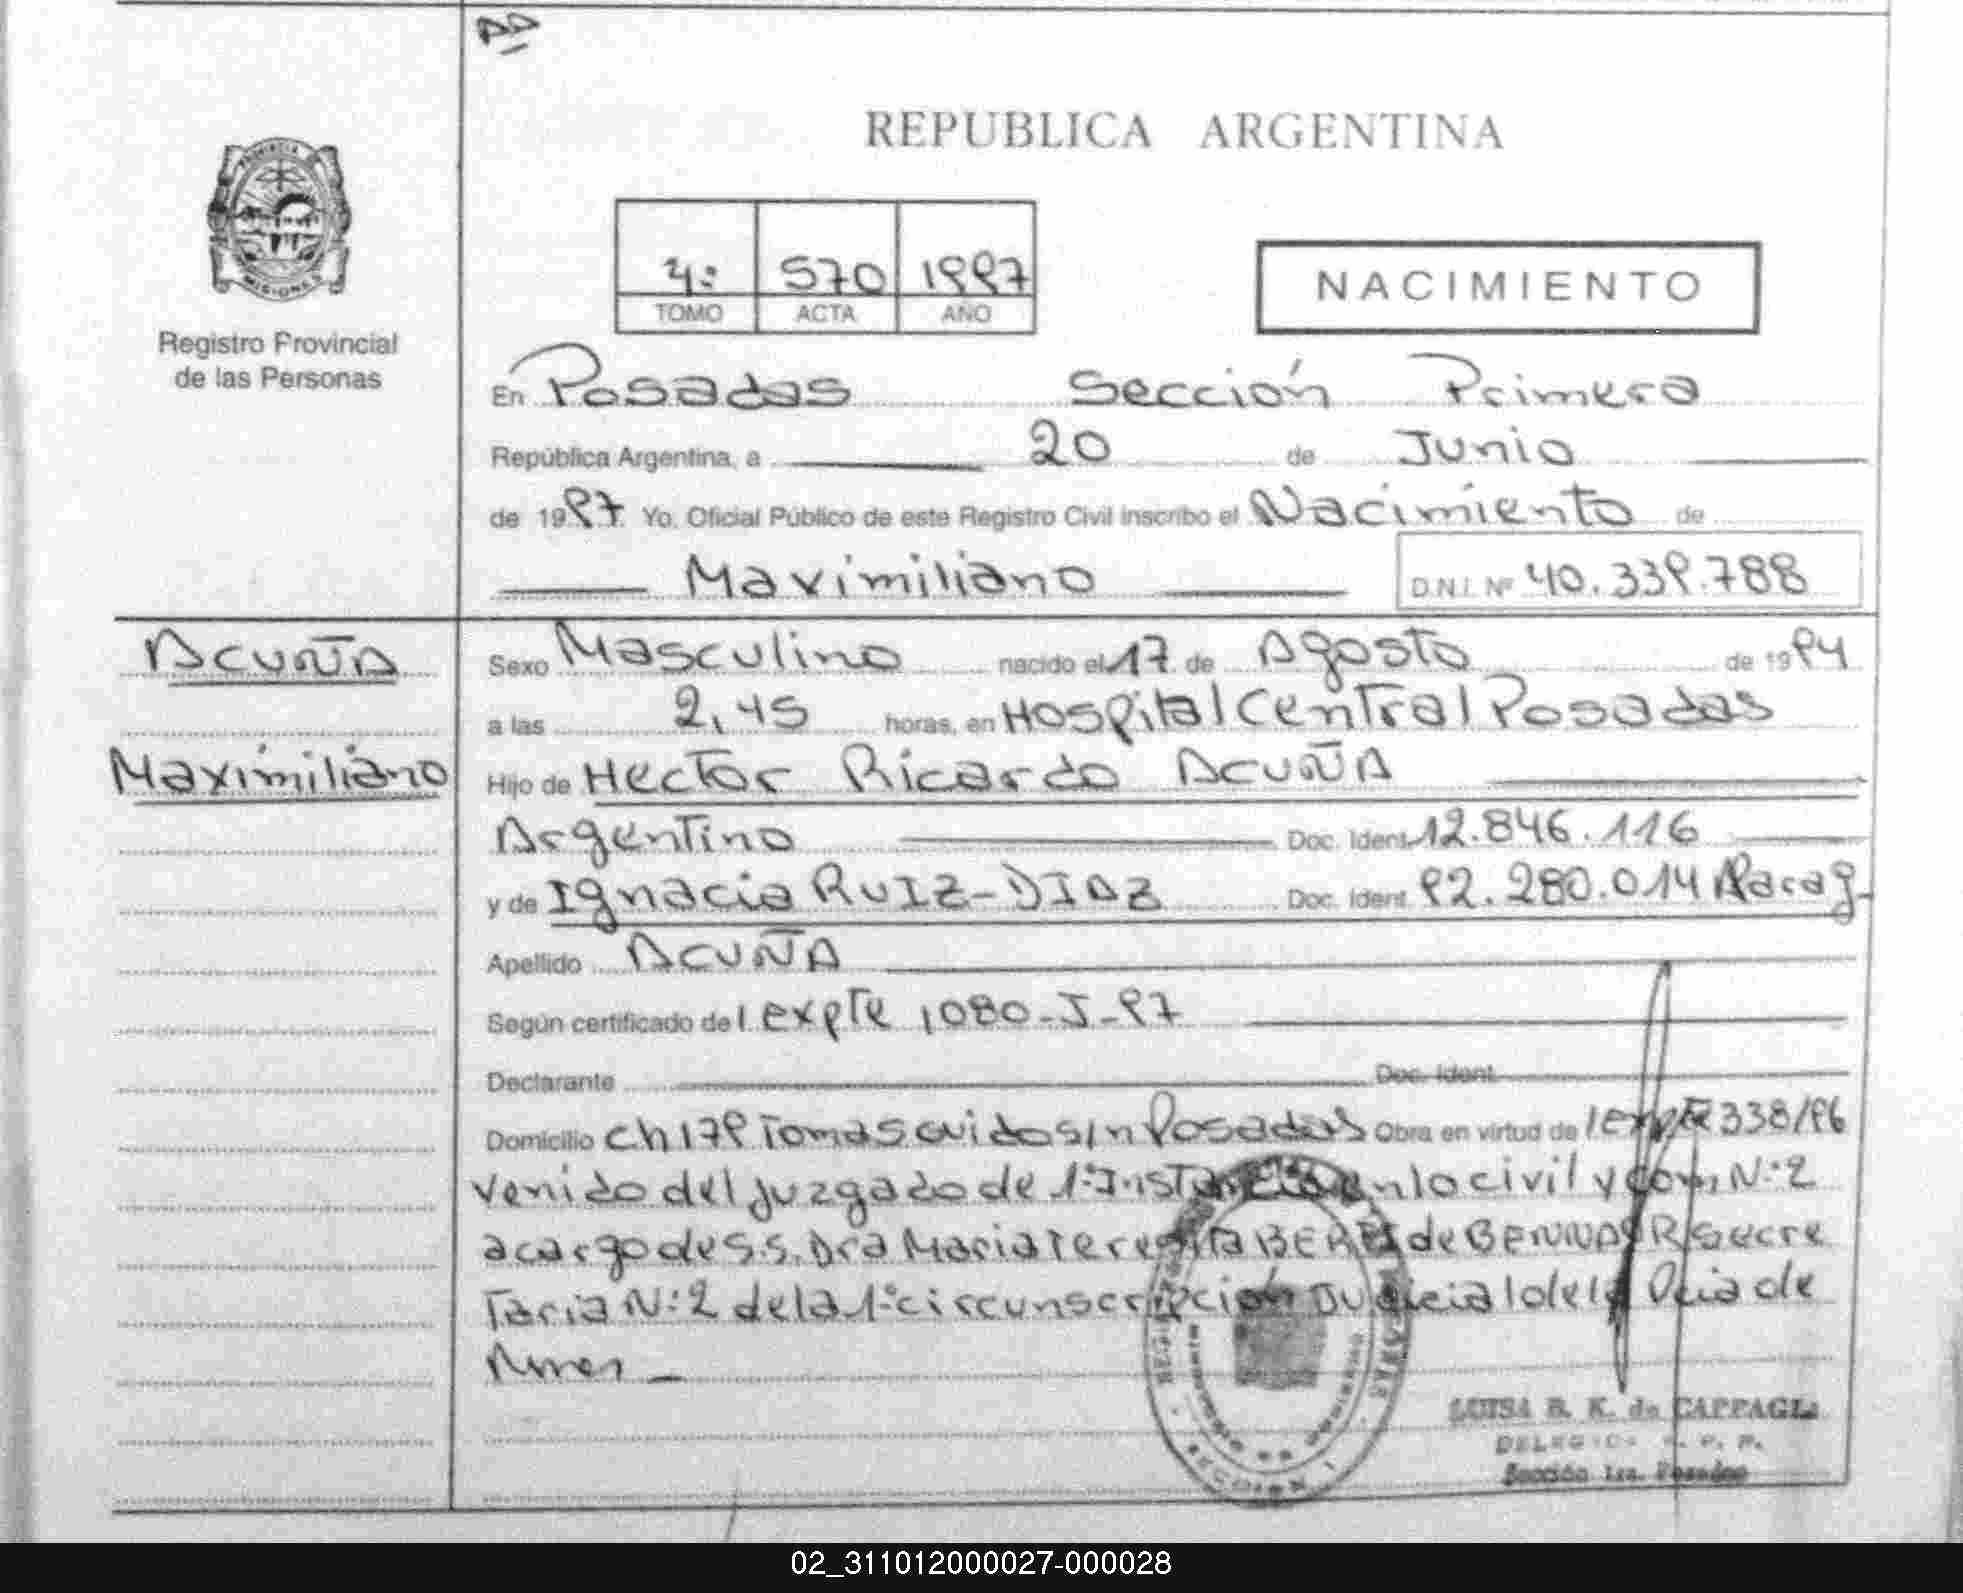 AA
REPUBLICA ARGENTINA
PROVINCIA DE
MISIONES
Registro Provincial
de las Personas
4º 570 1997
TOMO ACTA AÑO
NACIMIENTO
En Posadas Sección Primera
República Argentina, a 20 de Junio
de 1997 Yo, Oficial Público de este Registro Civil inscribo el Nacimiento de
Maximiliano D.N.I. Nº 40.339.788
ACUÑA
Maximiliano
Sexo Masculino nacido el 17 de Agosto de 1994
a las 2,45 horas, en Hospital Central Posadas
Hijo de Hector Ricardo ACUÑA
Argentino Doc. Ident 12.846.116
y de Ignacia RUIZ-DIAZ Doc. Ident. 92.280.014 Parag-
Apellido ACUÑA
Según certificado del expte 1080-J-97
Declarante Doc. Ident.
Domicilio Ch 179 Tomas Guido s/n Posadas Obra en virtud de l Expte 338/96
venido del juzgado de 1º Instancia en lo civil y com, Nº 2
a cargo de S.S. Dra Maria Teresita de BENNDOR secre
Taria Nº 2 de la 1º circunscripción Judicial de la Pcia de
Mnes _
LUISA B. K. de CAPPAGLI
R. P. P.
Sección 1ra. Posadas
02_311012000027-000028